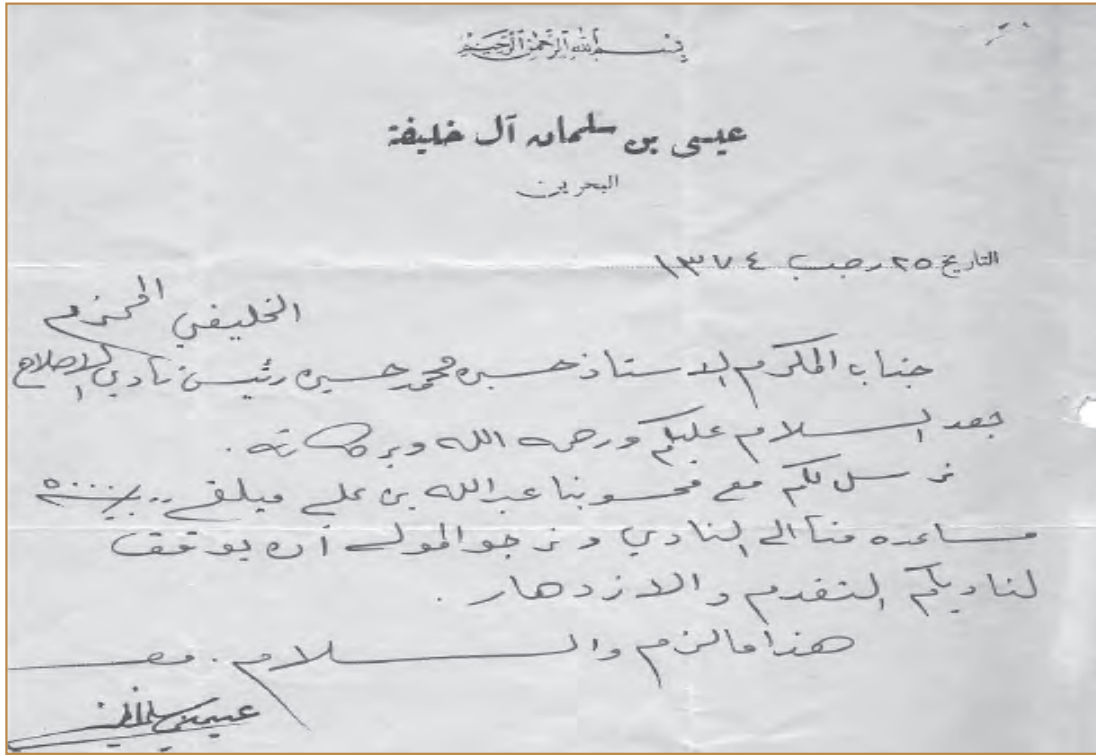 بسم الله الرحمن الرحيم
عيسى بن سلمان آل خليفة
البحرين
التاريخ ٢٥ رجب ١٣٧٤
جناب المكرم الاستاذ حسن محمد حسين رئيس نادي الاصلاح
الخليفي المحترم
بعد السلام عليكم ورحمة الله وبركاته.
نرسل لكم مع محسوبنا عبدالله بن علي مبلغ
مساعده منا الى النادي ونرجو المولى أن يوفق
لناديكم التقدم والازدهار.
هذا ما لزم والسلام.
عيسى بن سلمان